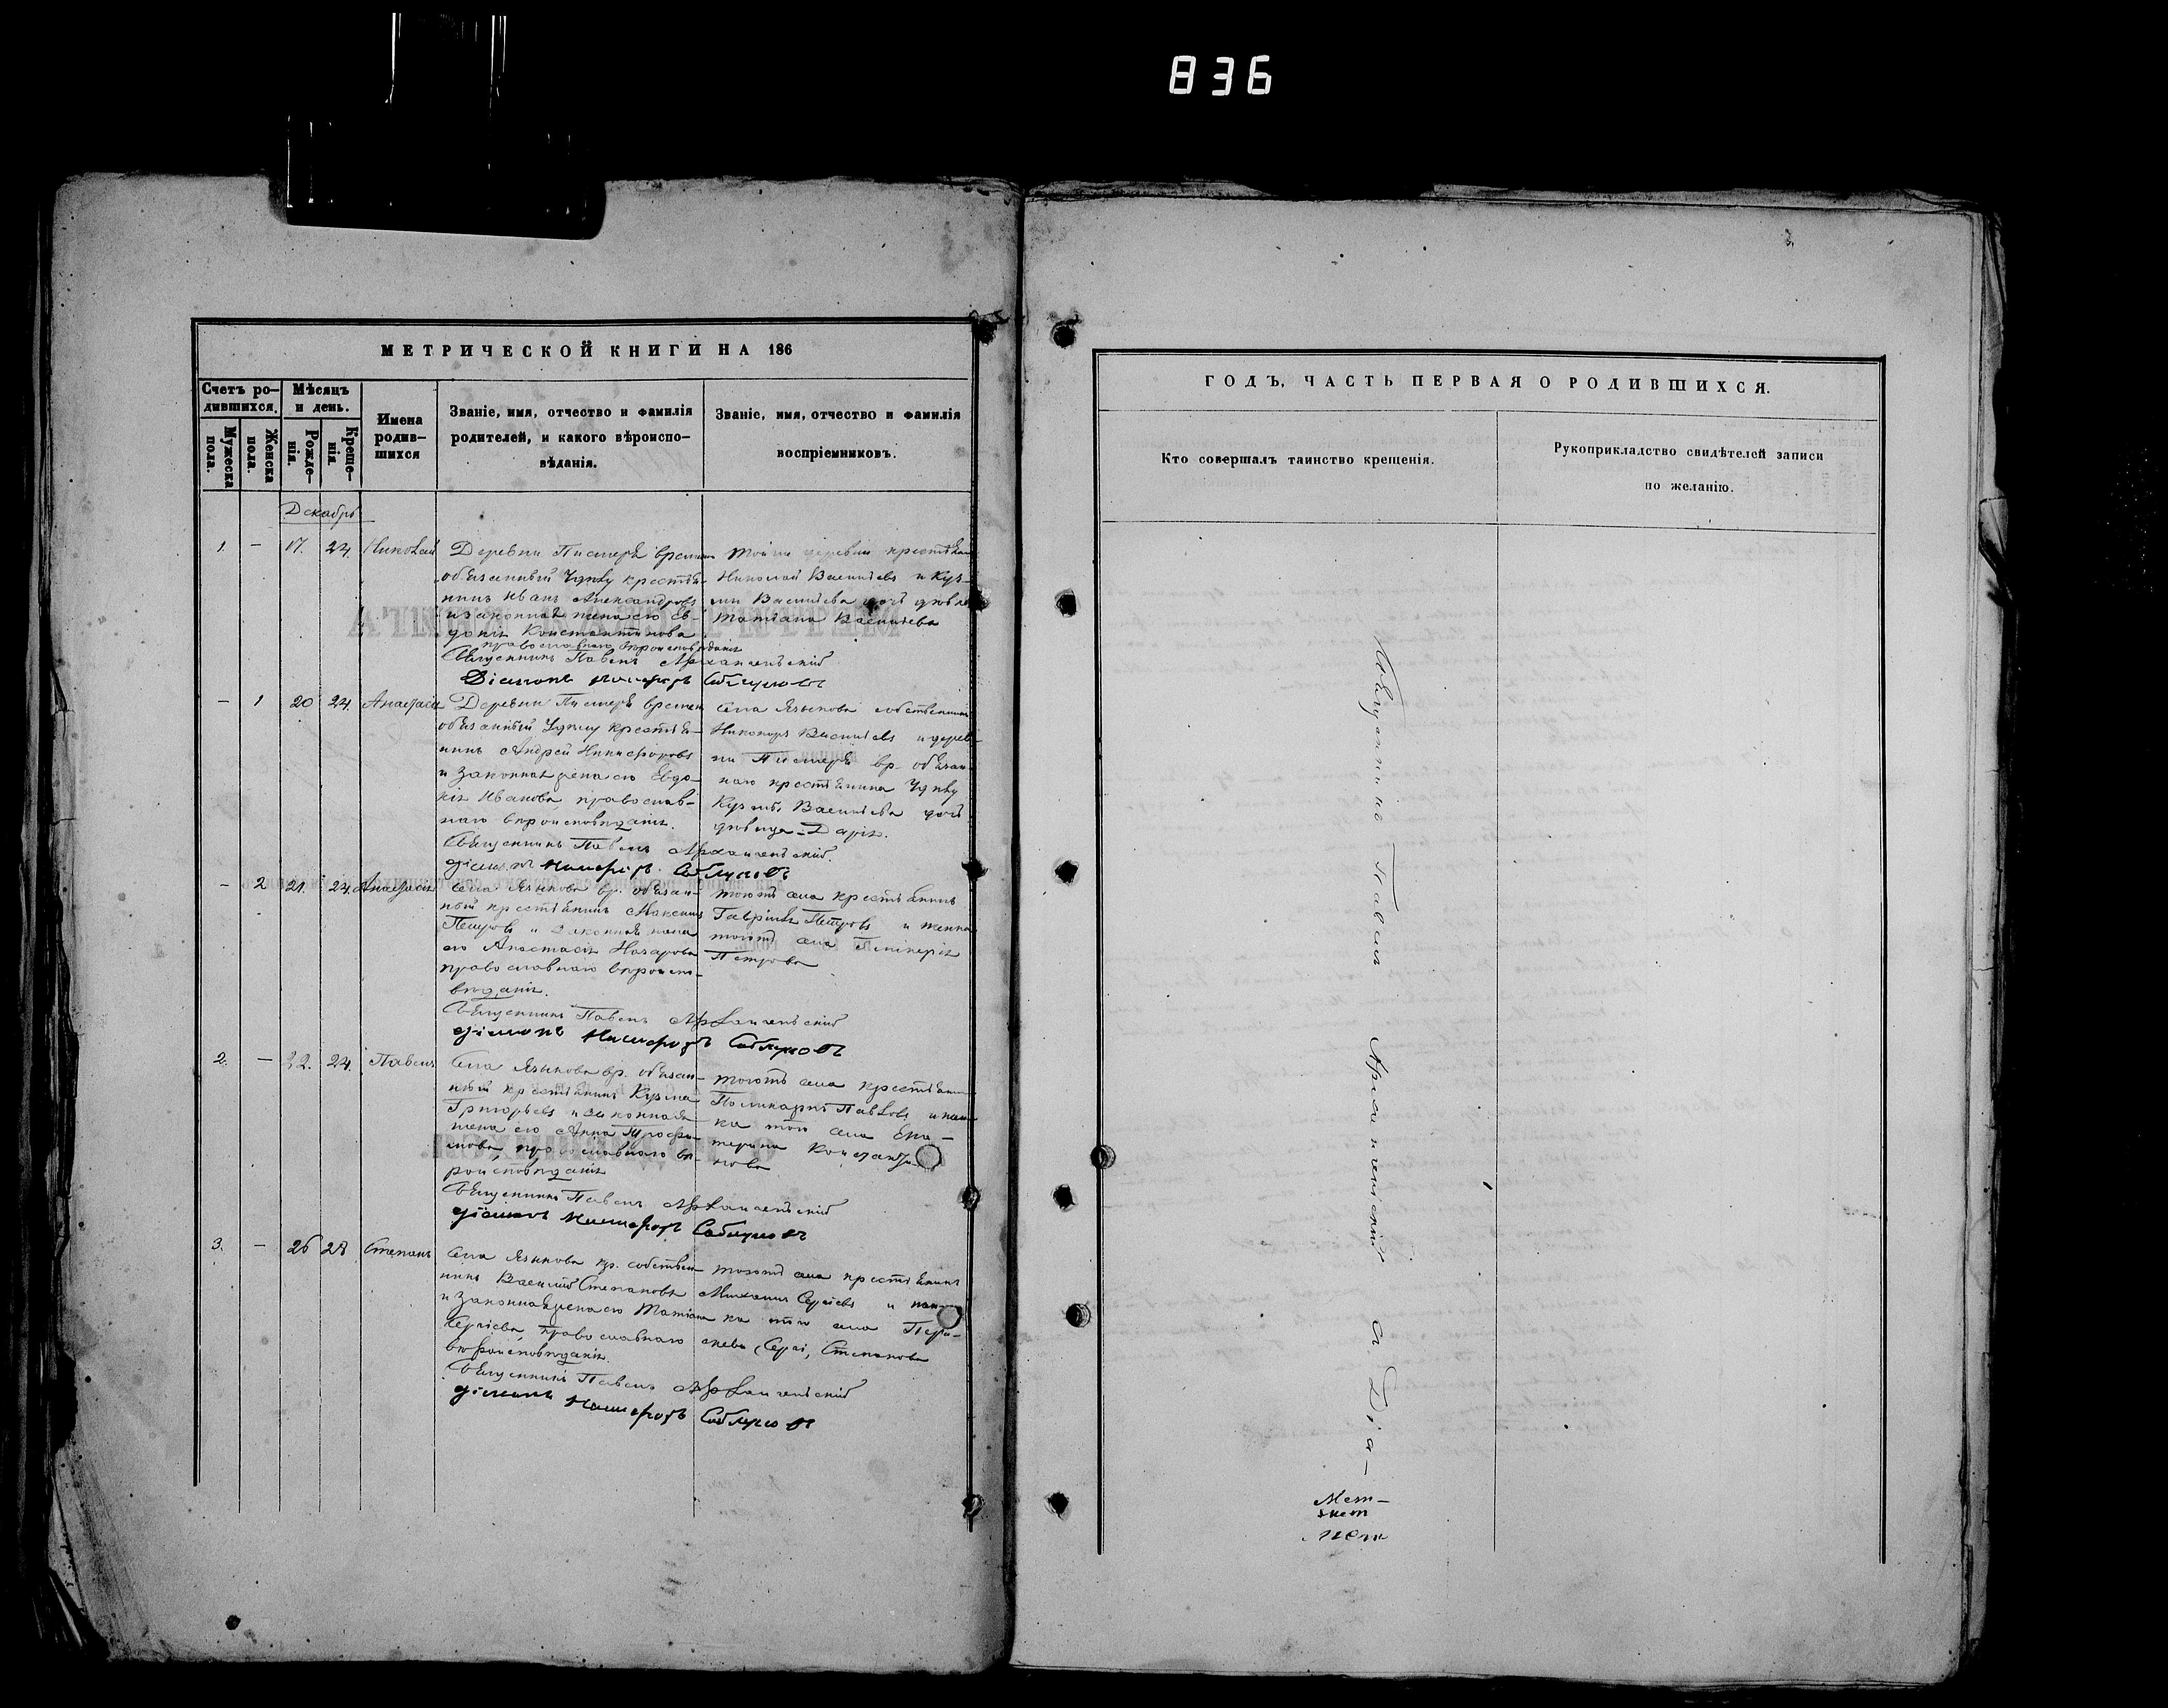 836
МЕТРИЧЕСКОЙ КНИГИ НА 186
Счетъ ро-
дившихся.
Мѣсяцъ
и день.
Мужеска
пола.
Женска
пола.
Рожде-
нія.
Креще-
нія.
Имена
родив-
шихся
Званіе, имя, отчество и фамилія
родителей, и какого вѣроиспо-
вѣданія.
Званіе, имя, отчество и фамилія
воспріемниковъ.
Декабрь
1. — 17. 24. Николай
Деревни
обязанный Удѣлу крестья-
нинъ Иванъ Александровъ
и законная жена его Ев-
докія Константинова
православнаго вѣроисповѣданія
Священникъ Павелъ Архангельскій
Діаконъ
Тойже деревни крестьян
Николай Васильевъ и Куз-
мы Васильева дочь дѣвица
Татіана Васильева
— 1 20 24. Анастасія
Деревни времен
обязанный Удѣлу крестья-
нинъ Андрей Никифоровъ
и законная жена его Евдо-
кія Иванова православ-
наго вѣроисповѣданія.
Священникъ Павелъ Архангельскій.
Села Языкова собственникъ
Никаноръ Васильевъ и дерев-
ни вр. обязан-
наго крестьянина Удѣлу
Кузмы Васильева дочь
дѣвица Дарія.
— 2 21. 24. Анастасія
Села Языкова вр. обязан-
ный крестьянинъ Максимъ
Петровъ и законная жена
его Анастасія Назарова
православнаго вѣроиспо-
вѣданія.
Священникъ Павелъ Архангельскій
тогожъ села крестьянинъ
Гавріилъ Петровъ и
тогожъ села
Петрова
2. — 22. 24. Павелъ
Села Языкова вр. обязан-
ный крестьянинъ Кузма
Григорьевъ и законная
жена его Анна Трофи-
мова, православнаго вѣ-
роисповѣданія
Священникъ Павелъ Архангельскій
тогожъ села крестьянинъ
Поликарпъ Павловъ и
ка того села Ека-
терина Константи-
нова
3. — 26 28 Степанъ
Села Языкова кр. собствен-
никъ Василій Степановъ
и законная жена его Татіана
Сергіева, православнаго
вѣроисповѣданія.
Священникъ Павелъ Архангельскій
тогожъ села крестьянинъ
Михаилъ Сергіевъ и
ка того села
Степанова
ГОДЪ, ЧАСТЬ ПЕРВАЯ О РОДИВШИХСЯ.
Кто совершалъ таинство крещенія.
Рукоприкладство свидѣтелей записи
по желанію.
Священникъ Павелъ Архангельскій съ Діа-